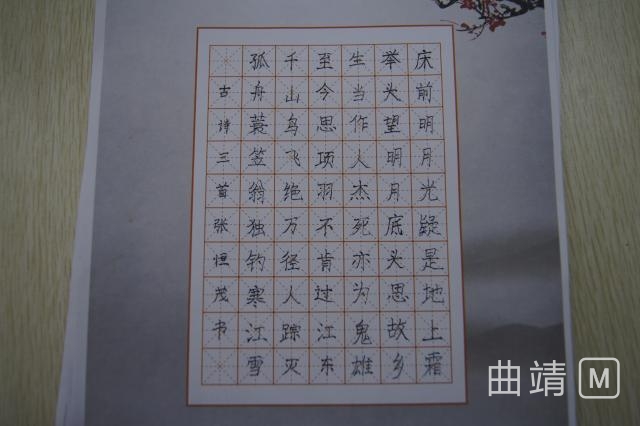 床前明月光疑是地上霜
举头望明月底头思故乡
生当作人杰死亦为鬼雄
至今思项羽不肯过江东
千山鸟飞绝万径人踪灭
孤舟蓑笠翁独钓寒江雪
古诗三首张恒茂书
曲靖M